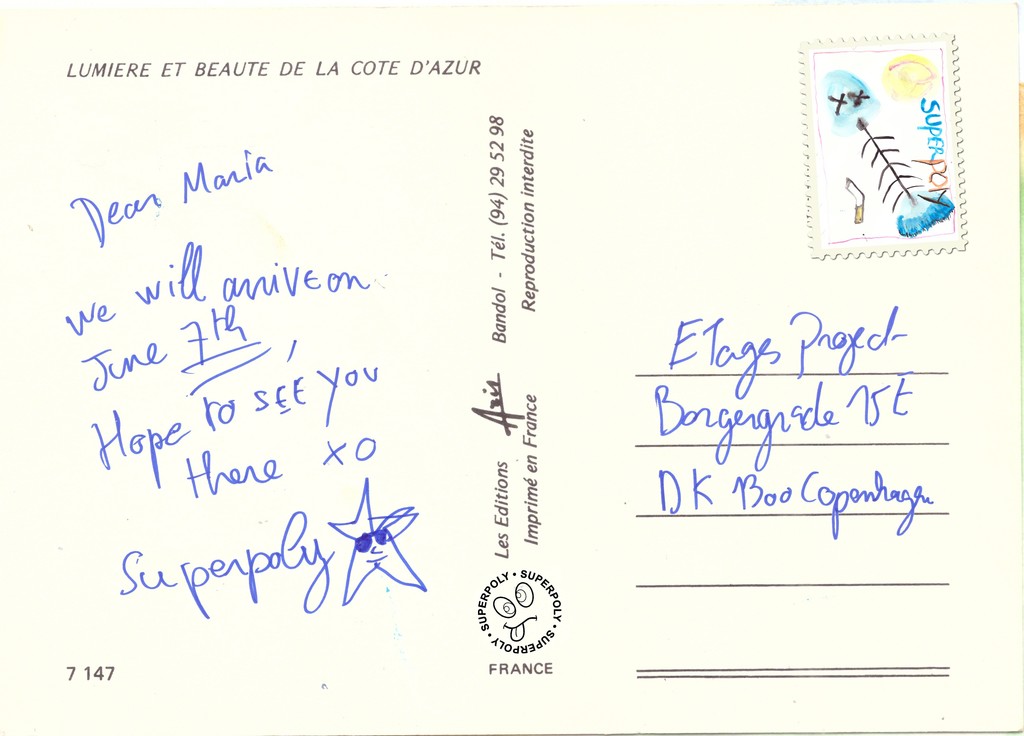 LUMIERE ET BEAUTE DE LA COTE D'AZUR
Dear Maria
we will arrive on
June 7th,
Hope to see you
there xo
Superpoly
7 147
Les Editions Aris Bandol - Tél. (94) 29 52 98
Imprimé en France Reproduction interdite
SUPERPOLY • SUPERPOLY • SUPERPOLY • SUPERPOLY •
FRANCE
SUPERPOLY
Etages Project
Borgergade 15E
DK 1300 Copenhagen